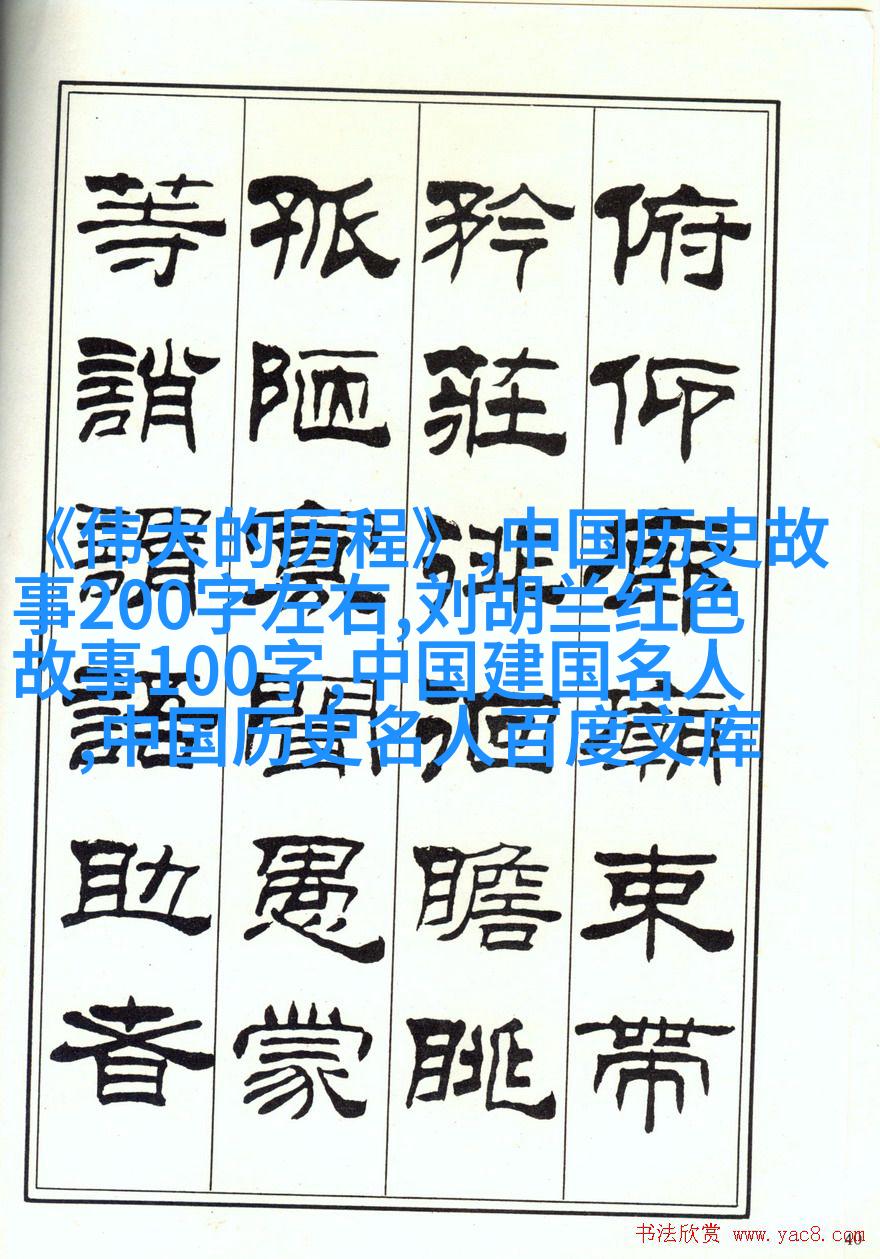 俯仰廊廟束帶
矜莊徘徊瞻眺
孤陋寡聞愚蒙
等誚謂語助者
《伟大的历程》,中国历史故
事200字左右,刘胡兰红色
故事100字,中国建国名人
,中国历史名人百度文库
书法欣赏 www.yac8.com
40